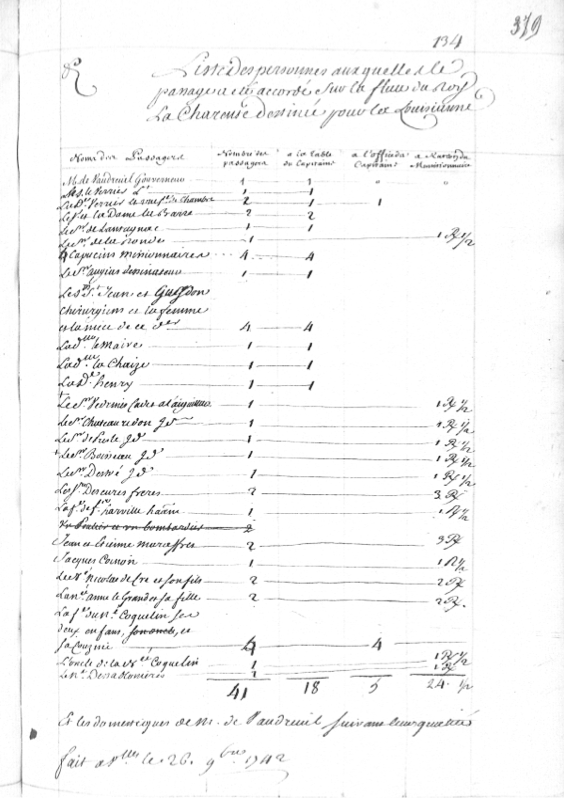 134
379
Liste des personnes auxquelles le
passage a été accordé sur la flute du Roy
La Charente destinée pour la Louisianne
Noms des Passagers Nombre des passagers a la table du Capitaine a l'office du Capitaine a Ration du Munitionnaire
M. de Vaudreuil Gouverneur 1 1 " "
M. le Verrier Lt 1 1
La De. Verrier et sa fe. de Chambre 2 1 1
Le Sr. et la Dame de Barre 2 2
Le Sr. de Lantagnac 1 1
Le Sr. de la Ronde 1 1 R 1/2
4 Capucins missionnaires 4 4
Le Sr. dessinateur 1 1
Les Srs. St. Jean et
chirurgiens et la femme
et la niece de ce der. 4 4
La dlle. le Maire 1 1
La dlle. la Chaize 1 1
La De. henry 1 1
Le Sr. Cadet a l'aiguillette 1 1 R 1/2
Le Sr. Chateauredon Jd. 1 1 R 1/2
Le Sr. Jd. 1 1 R 1/2
Le Sr. Boisseau Jd. 1 1 R 1/2
Le Sr. Jd. 1 1 R 1/2
Les Srs. Descures freres 2 3 R
1 1 R 1/2
un et un bombardier 2
Jean et Etienne 2 3 R
Jacques 1 1 R 1/2
Nicolas de et son fils 2 2 R
anne le Grand et sa fille 2 2 R.
La fe. du Coquelin ses
deux enfans, son oncle, et
sa Cousine 4 4
L'oncle de la Coquelin 1 1 R 1/2
Le 1 1 R
41 18 5 24 1/2
Et les domestiques de M. de Vaudreuil suivant leur qualité
fait a Vlles le 26. 9bre. 1742